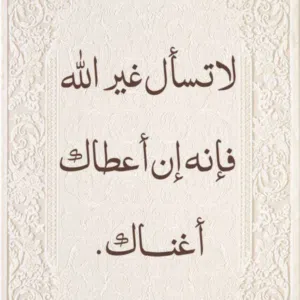 لا تسأل غير الله
فإنه إن أعطاك
أغناك.